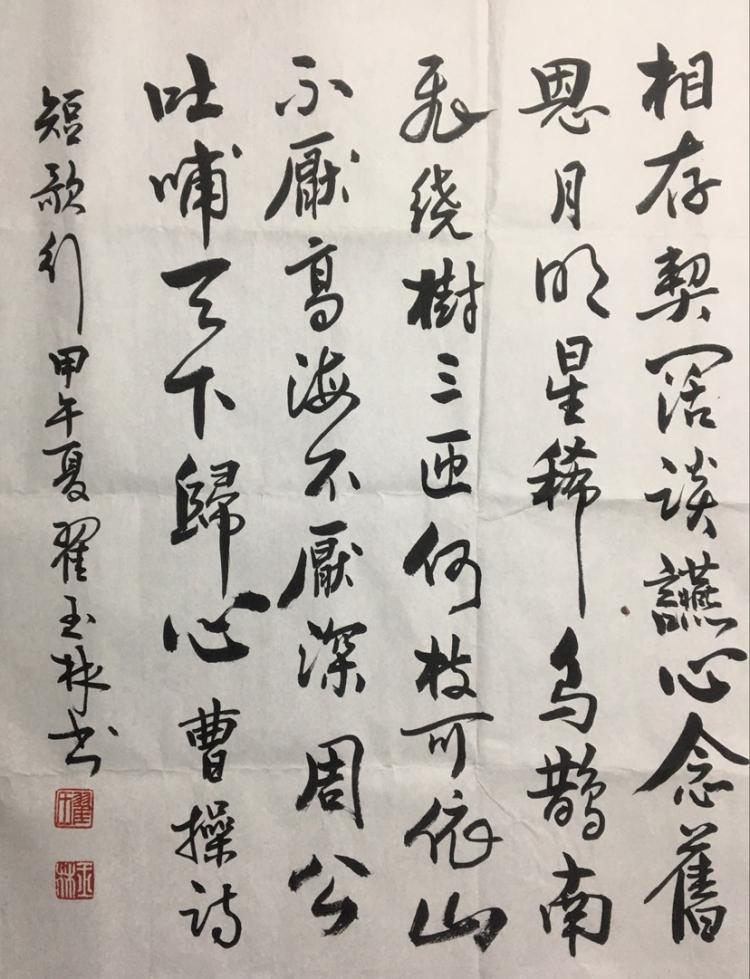 相存契阔談讌心念舊
恩月明星稀烏鵲南
飛绕樹三匝何枝可依山
不厭高海不厭深周公
吐哺天下歸心曹操詩
短歌行甲午夏翟玉林书
翟玉
玉林